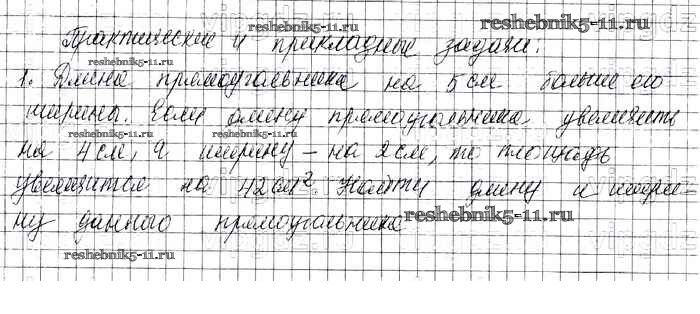 reshebnik5-11.ru
reshebnik5-11.ru
Практические и прикладные задачи.
reshebnik5-11.ru
1. Длина прямоугольника на 5 см больше его
ширины. Если длину прямоугольника увеличить
reshebnik5-11.ru
reshebnik5-11.ru
на 4 см, а ширину – на 2 см, то площадь
увеличится на 42 см². Найти длину и шири-
ну данного прямоугольника
reshebnik5-11.ru
reshebnik5-11.ru